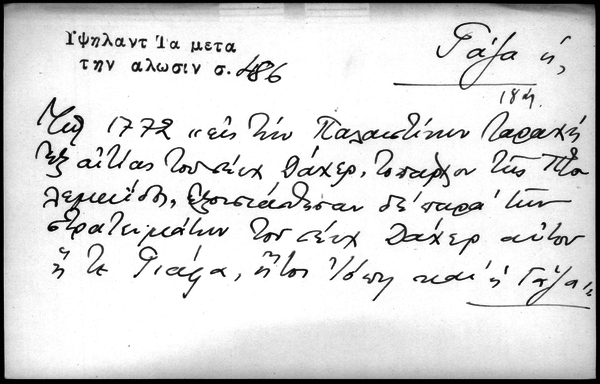 Ὑψηλαντ Τα μετα
την αλωσιν σ. 486
Γάζα ἡ,
18η.
1772 „ εἰς τὴν Παλαιστίνην ταραχὴ
ἐξ αἰτίας τοῦ σέιχ Δάχερ, τοπάρχου τῆς Πτο
λεμαΐδος, ἐξουσιάσθησαν δὲ παρὰ τῶν
στρατευμάτων τοῦ σέιχ Δάχερ αὐτοῦ
ἥ τε Γιάφα, ἤτοι Ἰόπη καὶ ἡ Γάζα „